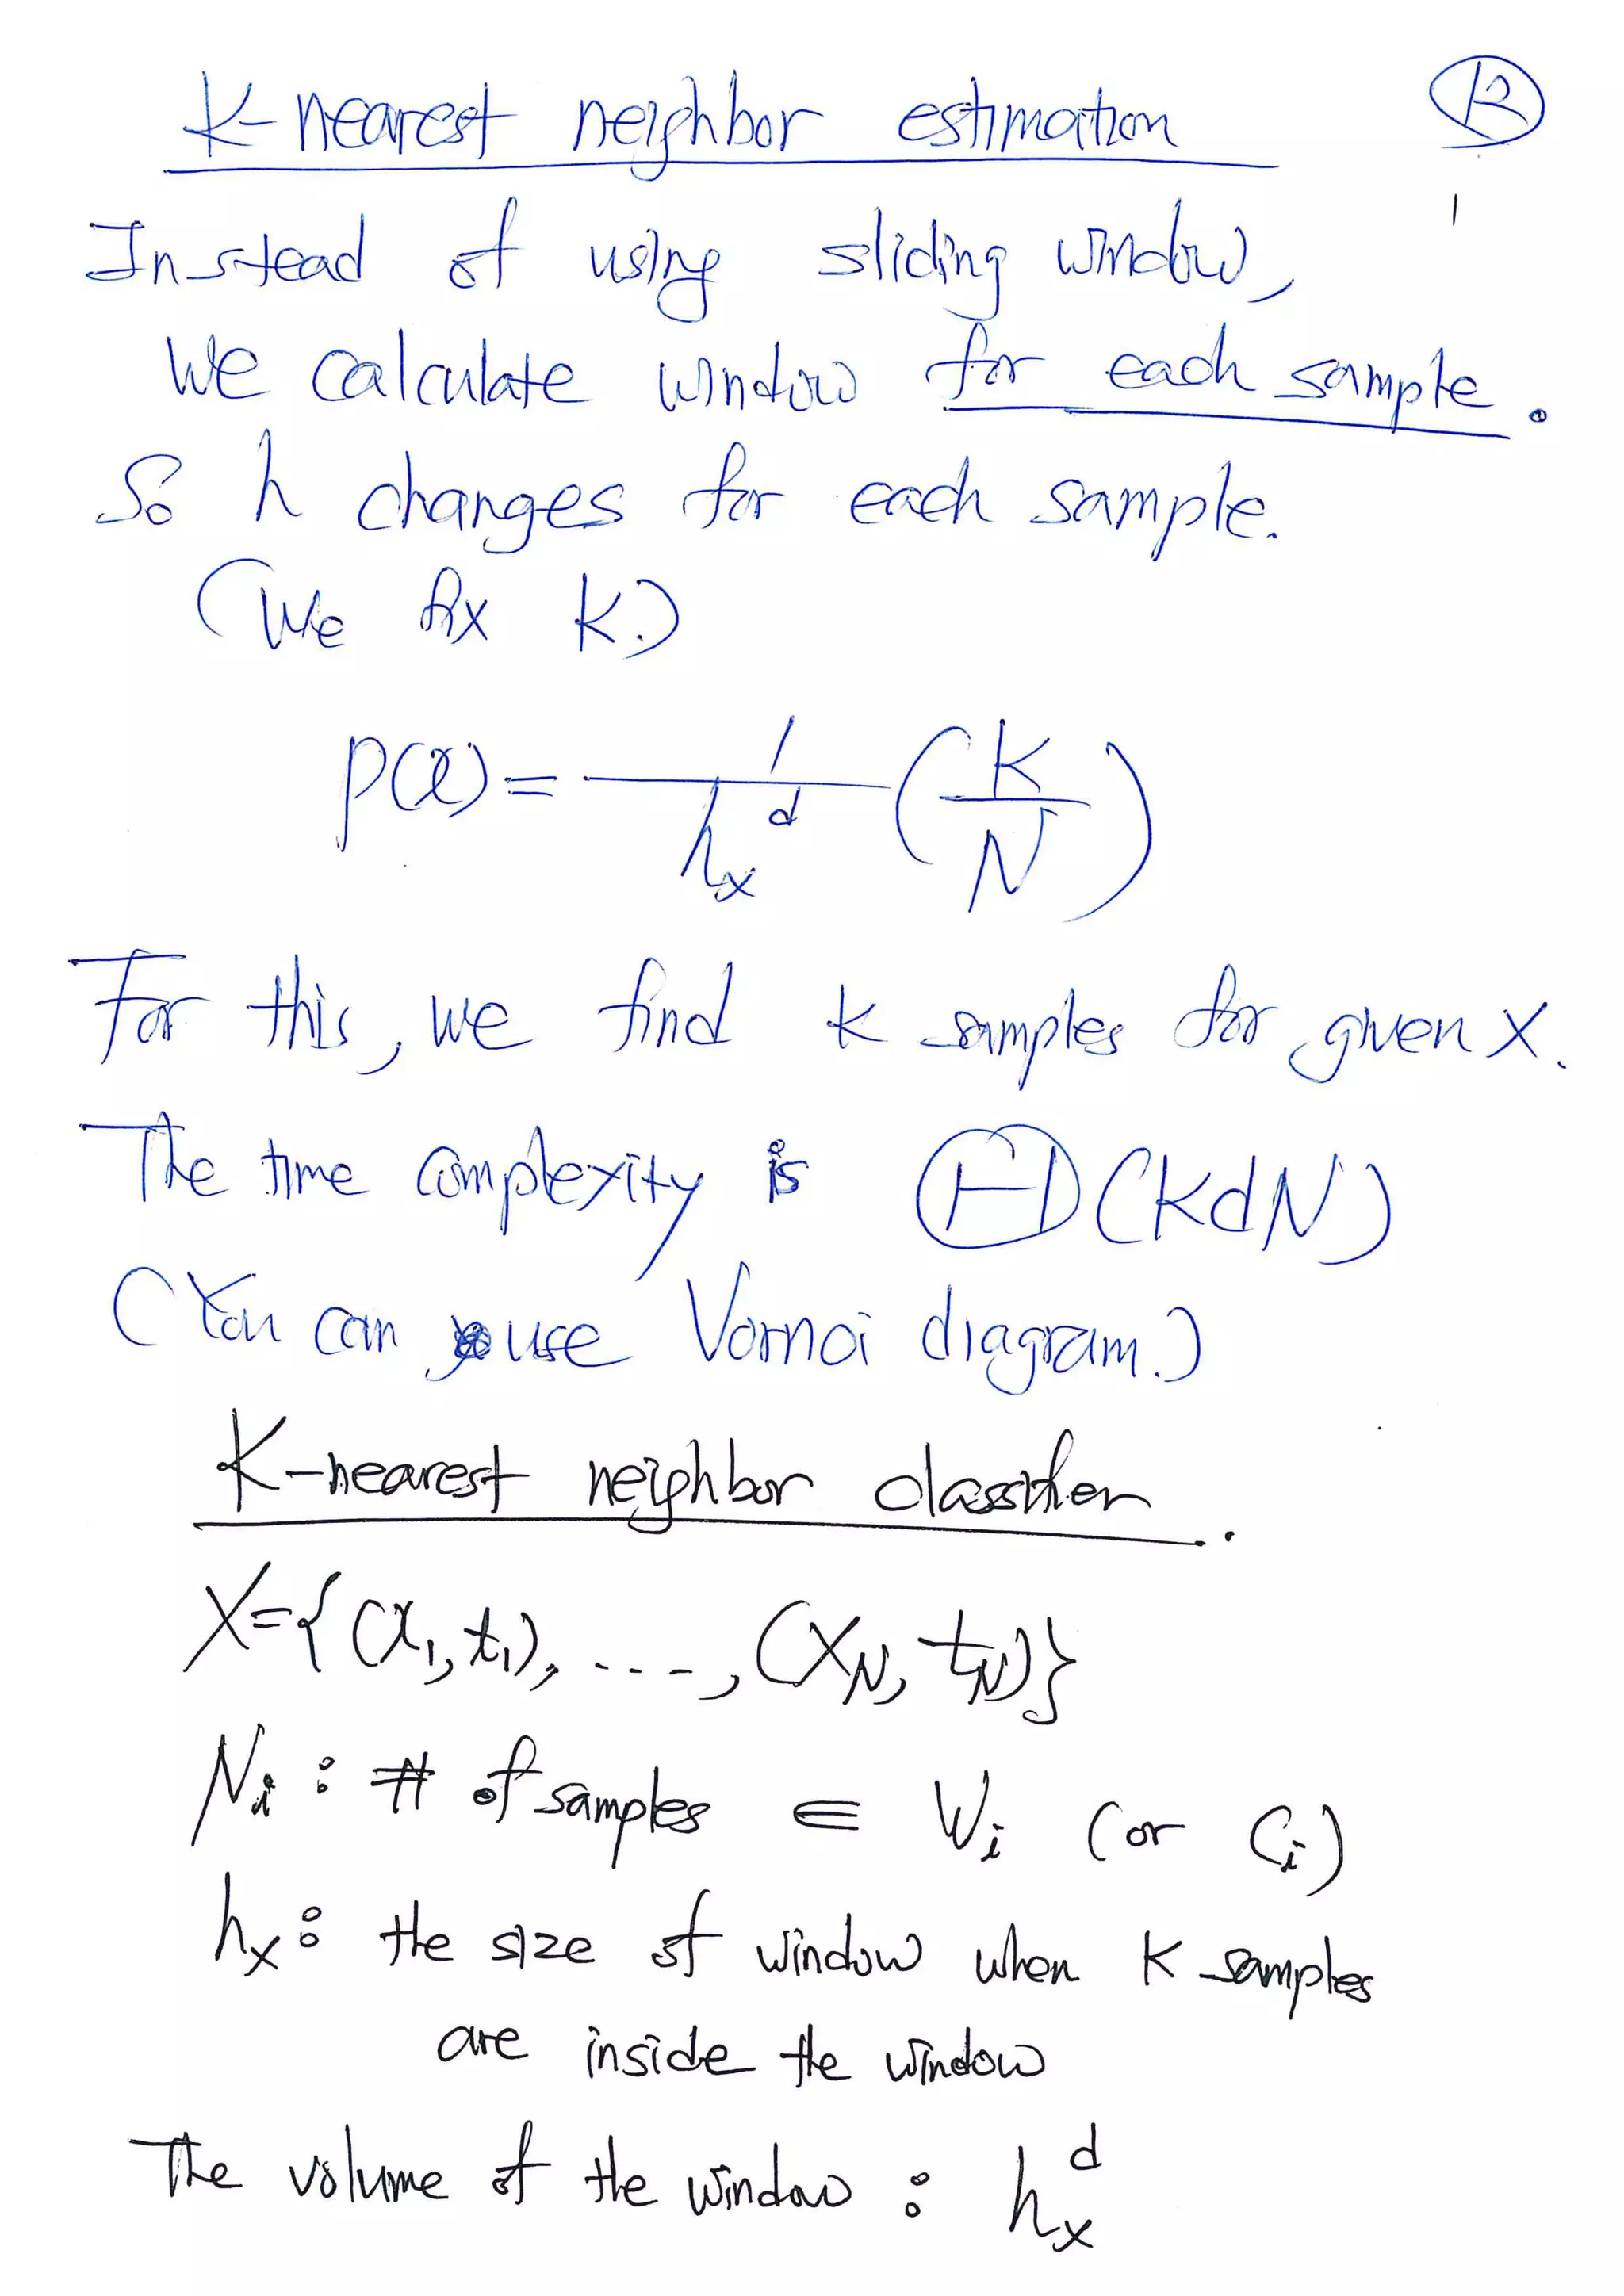 K-nearest neighbor estimation
Instead of using sliding window,
We calculate window for each sample.
So h changes for each sample.
(We fix k.)
p(x) = 1/h_x^d (k/N)
For this, we find k samples for given x.
The time complexity is Θ(kdN)
(You can use Vornoi diagram.)
K-nearest neighbor classifier.
X={(x₁,t₁), ...., (x_N, t_N)}
N_i : # of samples ∈ W_i (or C_i)
h_x : the size of window when k samples
are inside the window
The volume of the window : h_x^d